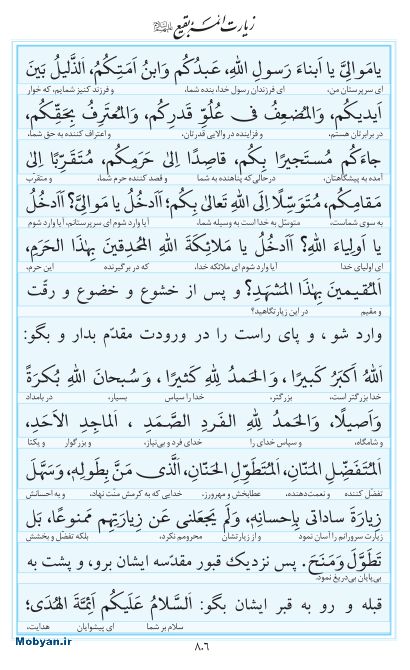 زیارت ائمه بقیع علیهم‌السلام
یامَوالِیَّ یا اَبناءَ رَسولِ اللهِ، عَبدُکُم وَابنُ اَمَتِکُمُ، الذَّلیلُ بَینَ
ای سرپرستان من، ای فرزندان رسول خدا، بنده شما، و فرزند کنیز شمایم، که خوار
اَیدیکُم، وَالمُضعِفُ فی عُلُوِّ قَدرِکُم، وَالمُعتَرِفُ بِحَقِّکُم،
در برابرتان هستم، و فزاینده در والایی قدرتان، و اعتراف کننده به حق شما،
جاءَکُم مُستَجیرًا بِکُم، قاصِدًا اِلیٰ حَرَمِکُم، مُتَقَرِّبًا اِلیٰ
آمده به پیشگاهتان، درحالی‌که پناهنده به شما و قصد کننده حرم شما، و متقرّب
مَقامِکُم، مُتَوَسِّلًا اِلَی اللهِ تَعالیٰ بِکُم؛ أاَدخُلُ یا مَوالِیَّ؟ أاَدخُلُ
به سوی شماست، متوسّل به خدا است به وسیله شما، آیا وارد شوم ای سرپرستانم، آیا وارد شوم
یا اَولِیاءَ اللهِ؟ أاَدخُلُ یا مَلائِکَةَ اللهِ المُحدِقینَ بِهٰذَا الحَرَمِ،
ای اولیای خدا آیا وارد شوم ای ملائکه خدا، که در بر گیرنده این حرم،
اَلمُقیمینَ بِهٰذَا المَشهَدِ؟ و پس از خشوع و خضوع و رقّت
و مقیم در این زیارتگاهید؟
وارد شو ، و پای راست را در ورودت مقدّم بدار و بگو:
اَللهُ اَکبَرُ کَبیرًا ، وَالحَمدُ لِلّٰهِ کَثیرًا ، وَسُبحانَ اللهِ بُکرَةً
خدا بزرگتر است، بزرگتر، خدا را سپاس بسیار، در بامداد
وَاَصیلًا، وَالحَمدُ لِلّٰهِ الفَردِ الصَّمَدِ ، اَلماجِدِ الاَحَدِ،
و شامگاه، و سپاس خدای را خدای فرد و بی‌نیاز، و بزرگوار و یکتا
اَلمُتَفَضِّلِ المَنّانِ، اَلمُتَطَوِّلِ الحَنّانِ، اَلَّذی مَنَّ بِطَولِهِ، وَسَهَّلَ
تفضّل کننده و نعمت‌دهنده، عطابخش و مهرورز، خدایی که به کرمش منّت نهاد، و به احسانش
زِیارَةَ ساداتی بِاِحسانِهِ، وَلَم یَجعَلنی عَن زِیارَتِهِم مَمنوعًا، بَل
زیارت سرورانم را آسان نمود و از زیارتشان محرومم نکرد، بلکه تفضّل و بخشش
تَطَوَّلَ وَمَنَحَ. پس نزدیک قبور مقدّسه ایشان برو، و پشت به
بی‌پایان بی‌دریغ نمود.
قبله و رو به قبر ایشان بگو: اَلسَّلامُ عَلَیکُم اَئِمَّةَ الهُدیٰ؛
سلام بر شما ای پیشوایان هدایت،
Mobyan.ir
۸۰۶